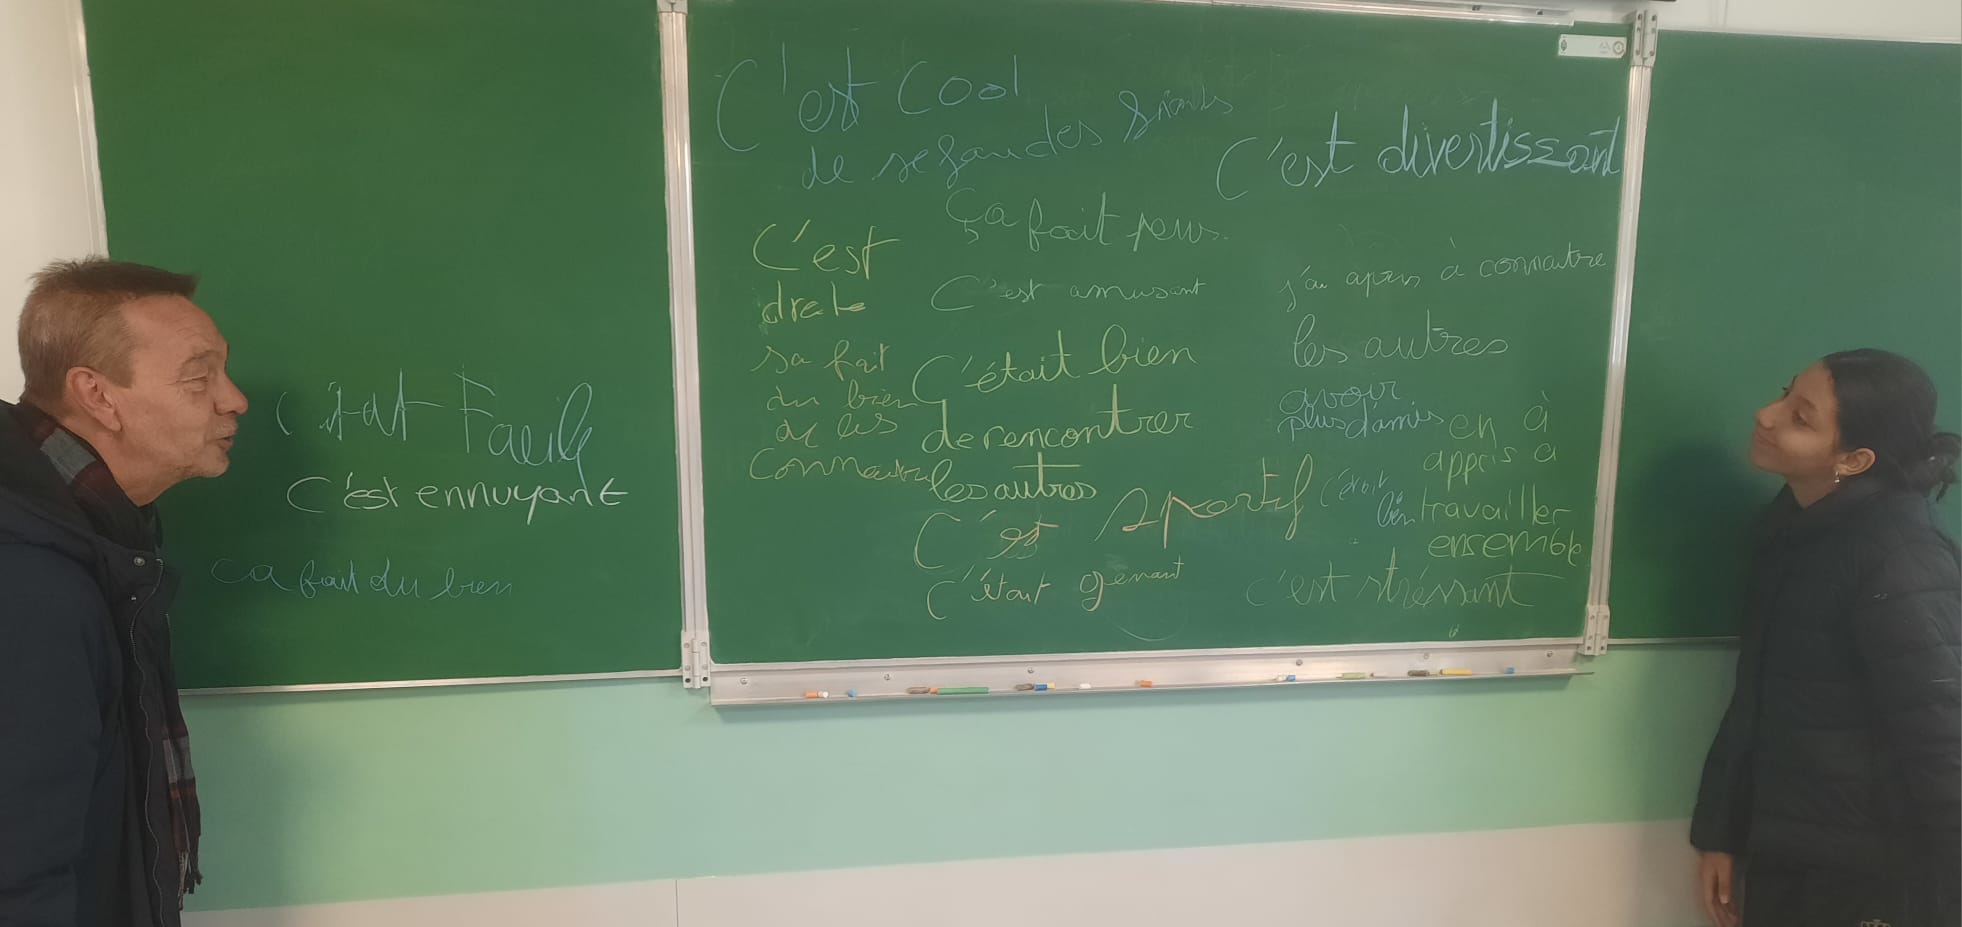 C'était Facile
C'est ennuyant
ça fait du bien
C'est cool
de se faire des
C'est divertissant
Ça fait peur.
C'est
drole
sa fait
du bien
de les
connaitre
C'est amusant
C'était bien
de rencontrer
les autres
C'est sportif
C'était genant
j'ai apris à connaitre
les autres
avoir
plus d'amis
c'était
bien
en à
appris a
travailler
ensemble
c'est stréssant